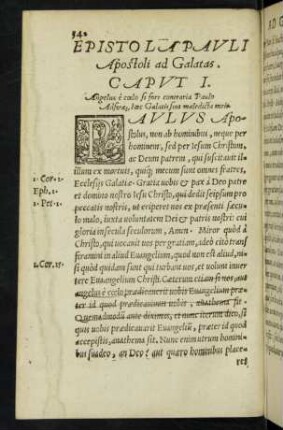 54.
EPISTOLA PAVLI
Apostoli ad Galatas.
CAPVT I.
PAVLVS Apo-
stolus, non ab hominibus, neque per
hominem, sed per Iesum Christum,
ac Deum patrem, qui suscitauit il-
lum ex mortuis, quiq; mecum sunt omnes fratres,
1. Cor. 1.
Ecclesijs Galatiæ. Gratia uobis & pax à Deo patre
Eph. 1.
et domino nostro Iesu Christo, qui dedit seipsum pro
1. Pet. 1.
peccatis nostris, ut eriperet nos ex præsenti sæcu-
lo malo, iuxta uoluntatem Dei & patris nostri: cui
gloria in secula seculorum, Amen. Miror quòd à
Christo, qui uocauit uos per gratiam, adeò citò trans
feramini in aliud Euangelium, quod non est aliud, ni-
2. Cor. 11.
si quòd quidam sunt qui turbant uos, et uolunt inuer
tere Euangelium Christi. Cæterum etiam si nos aut
angelus è cœlo prædicauerit uobis Euangelium præ-
ter id quod prædicauimus uobis, anathema sit.
Quemadmodū ante diximus, et nunc iterum dico, si
quis uobis prædicauerit Euangeliū, præter id quod
accepistis, anathema sit. Nunc enim utrum homini-
bus suadeo, an Deo? aut quæro hominibus place-
re?